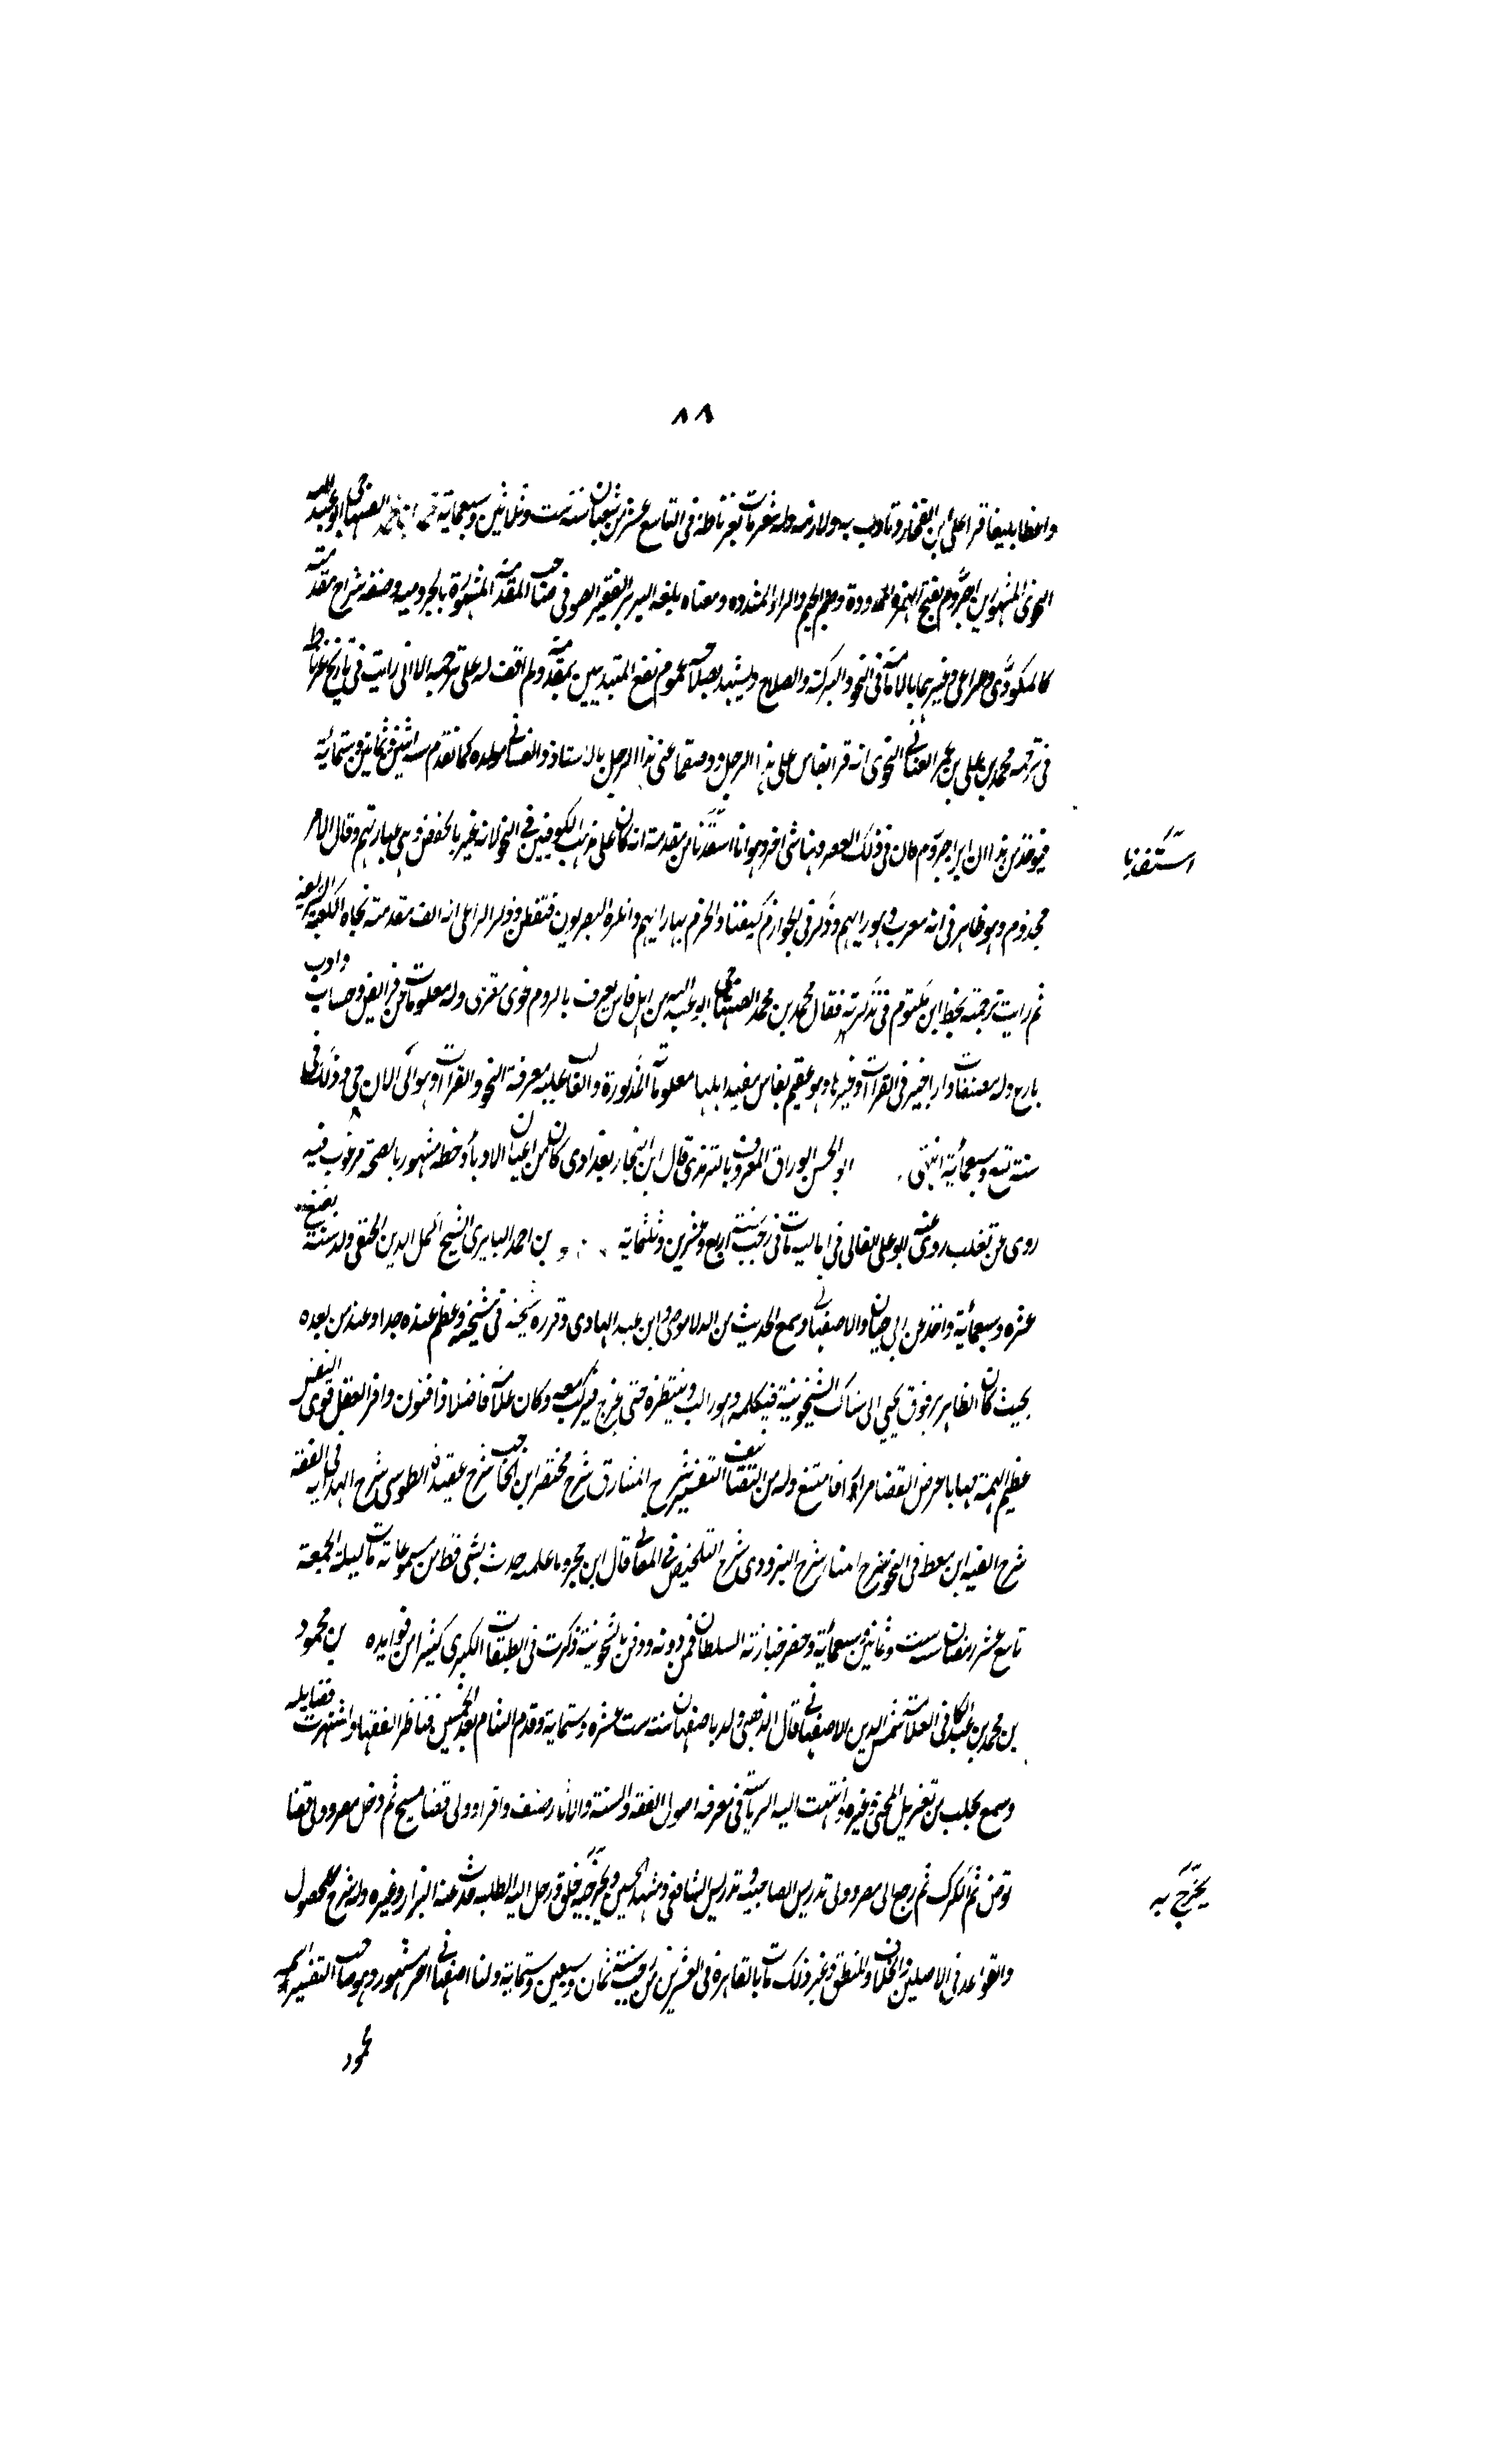 ٨٨
واعظا بليغا قرا على ابن الفخار وتادب به ولازمه وله شعر مات بغرناطة فى التاسع عشر من شعبان سنة ست وثلاثين وسبعماية محمد بن محمد الصنهاجى ابو عبد الله
النحوى المشهور بابن اجروم بفتح الهمزة الممدودة وضم الجيم والراء المشددة ومعناه بلغة البربر الفقير الصوفى صاحب المقدمة المشهورة بالجرومية وصفه شراح مقدمته
كالمكودى والراعى وغيرهما بالامامة فى النحو والبركة والصلاح ويشهد بصلاحه عموم نفع المبتديين بمقدمته ولم اقف له على ترجمة الا انى رايت فى تاريخ غرناطة
فى ترجمة محمد بن على بن عمر الغسانى النحوى انه قرا بفاس على هذا الرجل ووصفه اعنى هذا الرجل بالاستاذ والغسانى مولده كما تقدم سنة اثنتين وثمانين وستمائية
فيوخذ من هذا ان ابن اجروم كان فى ذلك العصر وهنا شى اخر وهو انا استفدنا من مقدمته انه كان على مذهب الكوفيين فى النحو لانه عبر بالخفض وهى عبارتهم وقال الامر
استفدنا
مجزوم وهو ظاهر فى انه معرب وهو رايهم وذكر فى الجوازم كيفما والجزم بها رايهم وانكره البصريون فتفطن وذكر الراعى انه الف مقدمته تجاه الكعبة الشريفة
ثم رايت ترجمته بخط ابن مكتوم فى تذكرته فقال محمد بن محمد الصنهاجى ابو عبد الله من اهل فاس يعرف باكروم نحوى مقرى وله معلومات من فرايض وحساب وادب
بارع وله مصنفات واراجيز فى القراآت وغيرها وهو مقيم بفاس مفيد اهلها معلوماته المذكورة والغالب عليه معرفة النحو والقراآت وهو الى الان حى وذلك فى
سنة تسع وسبعمائية انتهى ابو الحسن الوراق المعروف بالترمذى قال ابن النجار بغدادى كان من اعيان الادباء وخطه مشهور بالصحة مرغوب فيه
روى عن ثعلب روى عنه ابو على القالى فى اماليه مات فى رجب سنة اربع وعشرين وثلثماية بن احمد البابرتى الشيخ اكمل الدين الحنفى ولد سنة بضع
عشرة وسبعمائية واخذ عن ابى حيان والاصفهانى وسمع الحديث من الدلاصى وابن عبد الهادى وقرره شيخه فى مشيخته وعظم عنده جدا وعند من بعده
بحيث كان الظاهر برقوق يجى الى شباك الشيخونية فيكلمه وهو راكب وينتظره حتى يخرج فيركب معه وكان علامة فاضلا ذا فنون وافر العقل قوى النفس
عظيم الهمة مهابا عرض القضا مرارا فامتنع وله من التصانيف التفسير شرح المشارق شرح مختصر ابن الحاجب شرح عقيدة الطوسى شرح الهداية فى الفقه
شرح الفية ابن معط فى النحو شرح المنار شرح البزدوى شرح التلخيص فى المعانى قال ابن حجر وما علمته حدث بشى قط من مسموعاته مات ليلة الجمعة
تاسع عشر رمضان سنة ست وثمانين وسبعمائية وحضر جنازته السلطان فمن دونه ودفن بالشيخونية ذكرت فى الطبقات الكبرى كثيرا من فوايده بن محمود
بن محمد بن عبد الكافى العلامة شمس الدين الاصفهانى قال الذهبى ولد باصفهان سنة ست عشرة وستماية وقدم الشام بعد الخمسين فناظر الفقها واشتهرت فضايله
وسمع بحلب من طغريل المحسنى وغيره وانتهت اليه الرياسة فى معرفة اصول الفقه والسنة والاثار وصنف واقرا وولى قضا منبج ثم دخل مصر وولى قضا
قوص ثم الكرك ثم رجع الى مصر وولى تدريس الصاحبية وتدريس الشافعى ومشهد الحسين وتخرج به خلق ورحل اليه الطلبة حدث عنه البزار وغيره وله شرح المحصول
يخرج به
والقواعد فى الاصلين والخلاف والمنطق وغير ذلك مات بالقاهرة فى العشرين من رجب سنة ثمان وسبعين وستماية ولنا اصفهانى اخر مشهور وهو صاحب التفسير اسمه
محمود